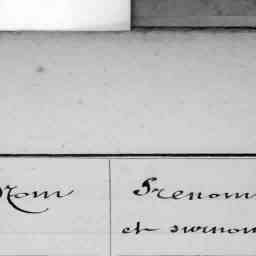 Nom
Prenom
et surnom